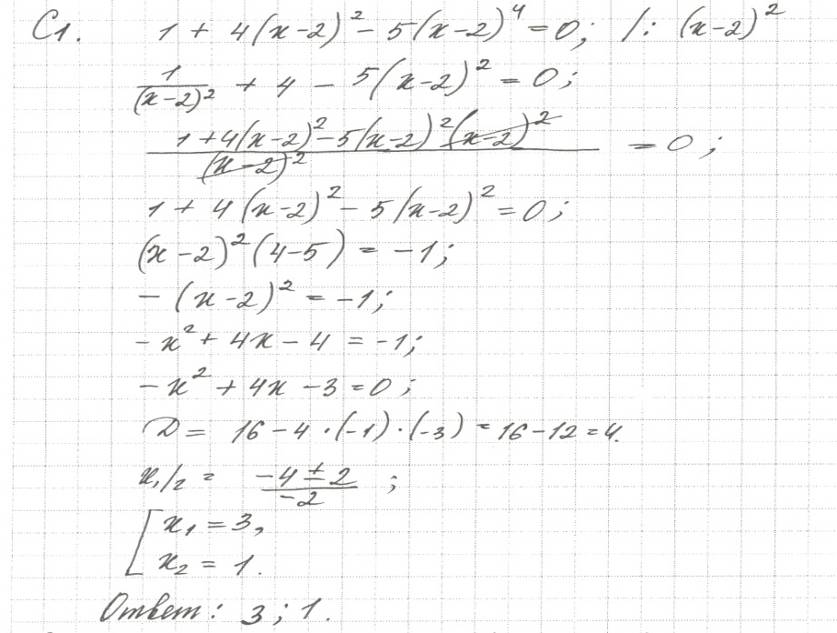 С1. 1 + 4(x-2)² - 5(x-2)⁴ = 0; /: (x-2)²
1/(x-2)² + 4 - 5(x-2)² = 0;
(1+4(x-2)²-5(x-2)²(x-2)²)/(x-2)² = 0;
1 + 4(x-2)² - 5(x-2)² = 0;
(x-2)²(4-5) = -1;
-(x-2)² = -1;
-x² + 4x - 4 = -1;
-x² + 4x - 3 = 0;
D = 16 - 4·(-1)·(-3) = 16-12 = 4.
x₁/₂ = (-4 ± 2)/(-2);
[ x₁ = 3,
x₂ = 1.
Ответ: 3; 1.